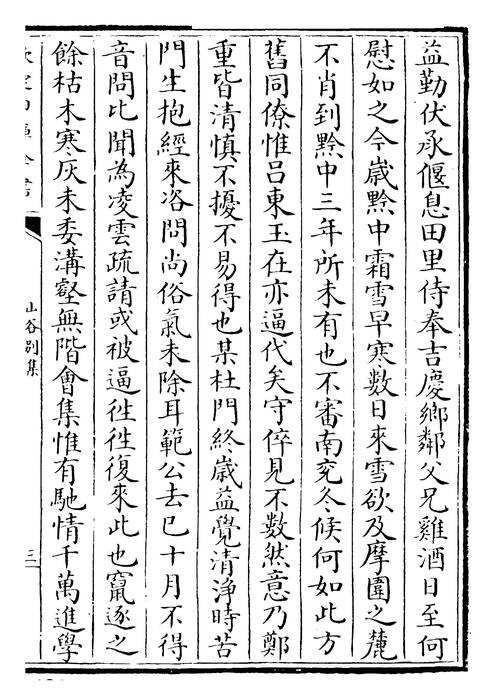 益勤伏承偃息田里侍奉吉慶鄉鄰父兄雞酒日至何
慰如之今歲黔中霜雪早寒數日來雪欲及摩圍之麓
不肖到黔中三年所未有也不審南兖冬候何如此方
舊同僚惟吕東玉在亦逼代矣守倅見不數然意乃鄭
重皆清慎不擾不易得也某杜門終歲益覺清浄時苦
門生抱經來咨問尚俗氣未除耳範公去已十月不得
音問比聞為凌雲疏請或被逼徃徃復來此也竄逐之
餘枯木寒灰未委溝壑無階會集惟有馳情千萬進學
欽定四庫全書
山谷别集
三